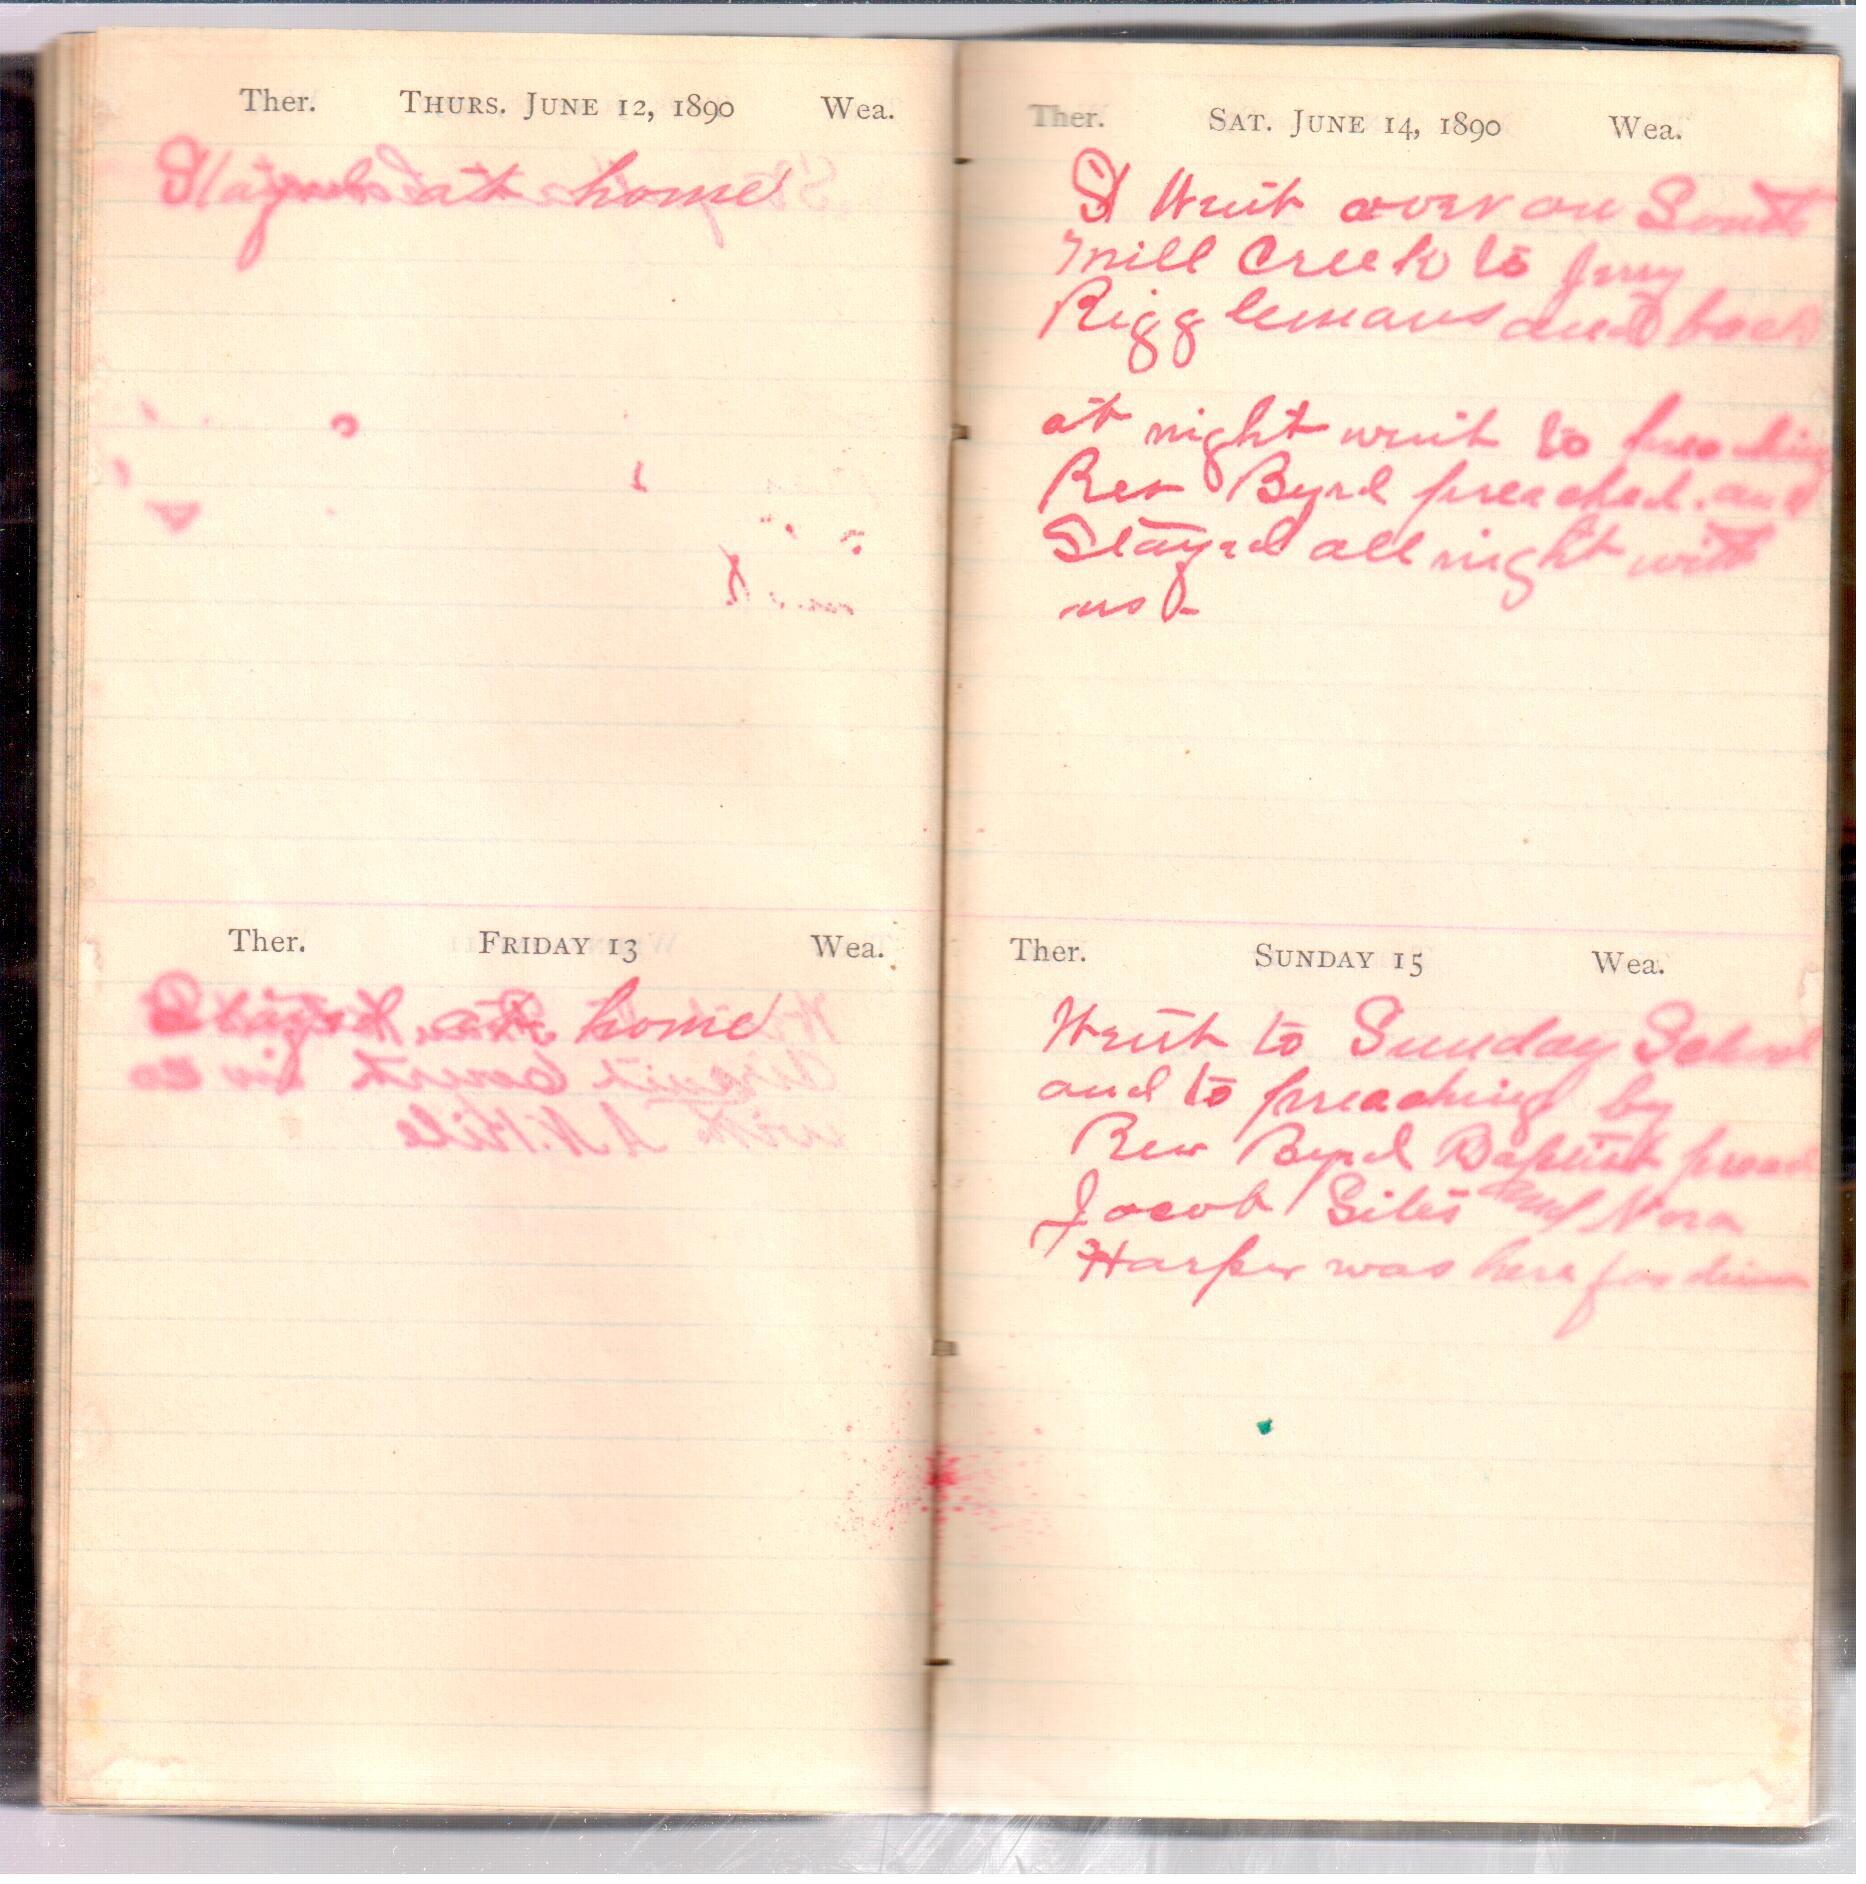 Ther. THURS. JUNE 12, 1890 Wea.
Stayed at home
Ther. FRIDAY 13 Wea.
Stayed at home
Ther. SAT. JUNE 14, 1890 Wea.
I Went over on South
mill Creek to Jerry
Rigglemans and back
at night went to preaching
Rev Byrd preached. and
Stayed all night with
us -
Ther. SUNDAY 15 Wea.
Went to Sunday School
and to preaching by
Rev Byrd Baptist
Jacob Sites and Nora
Harper was here for